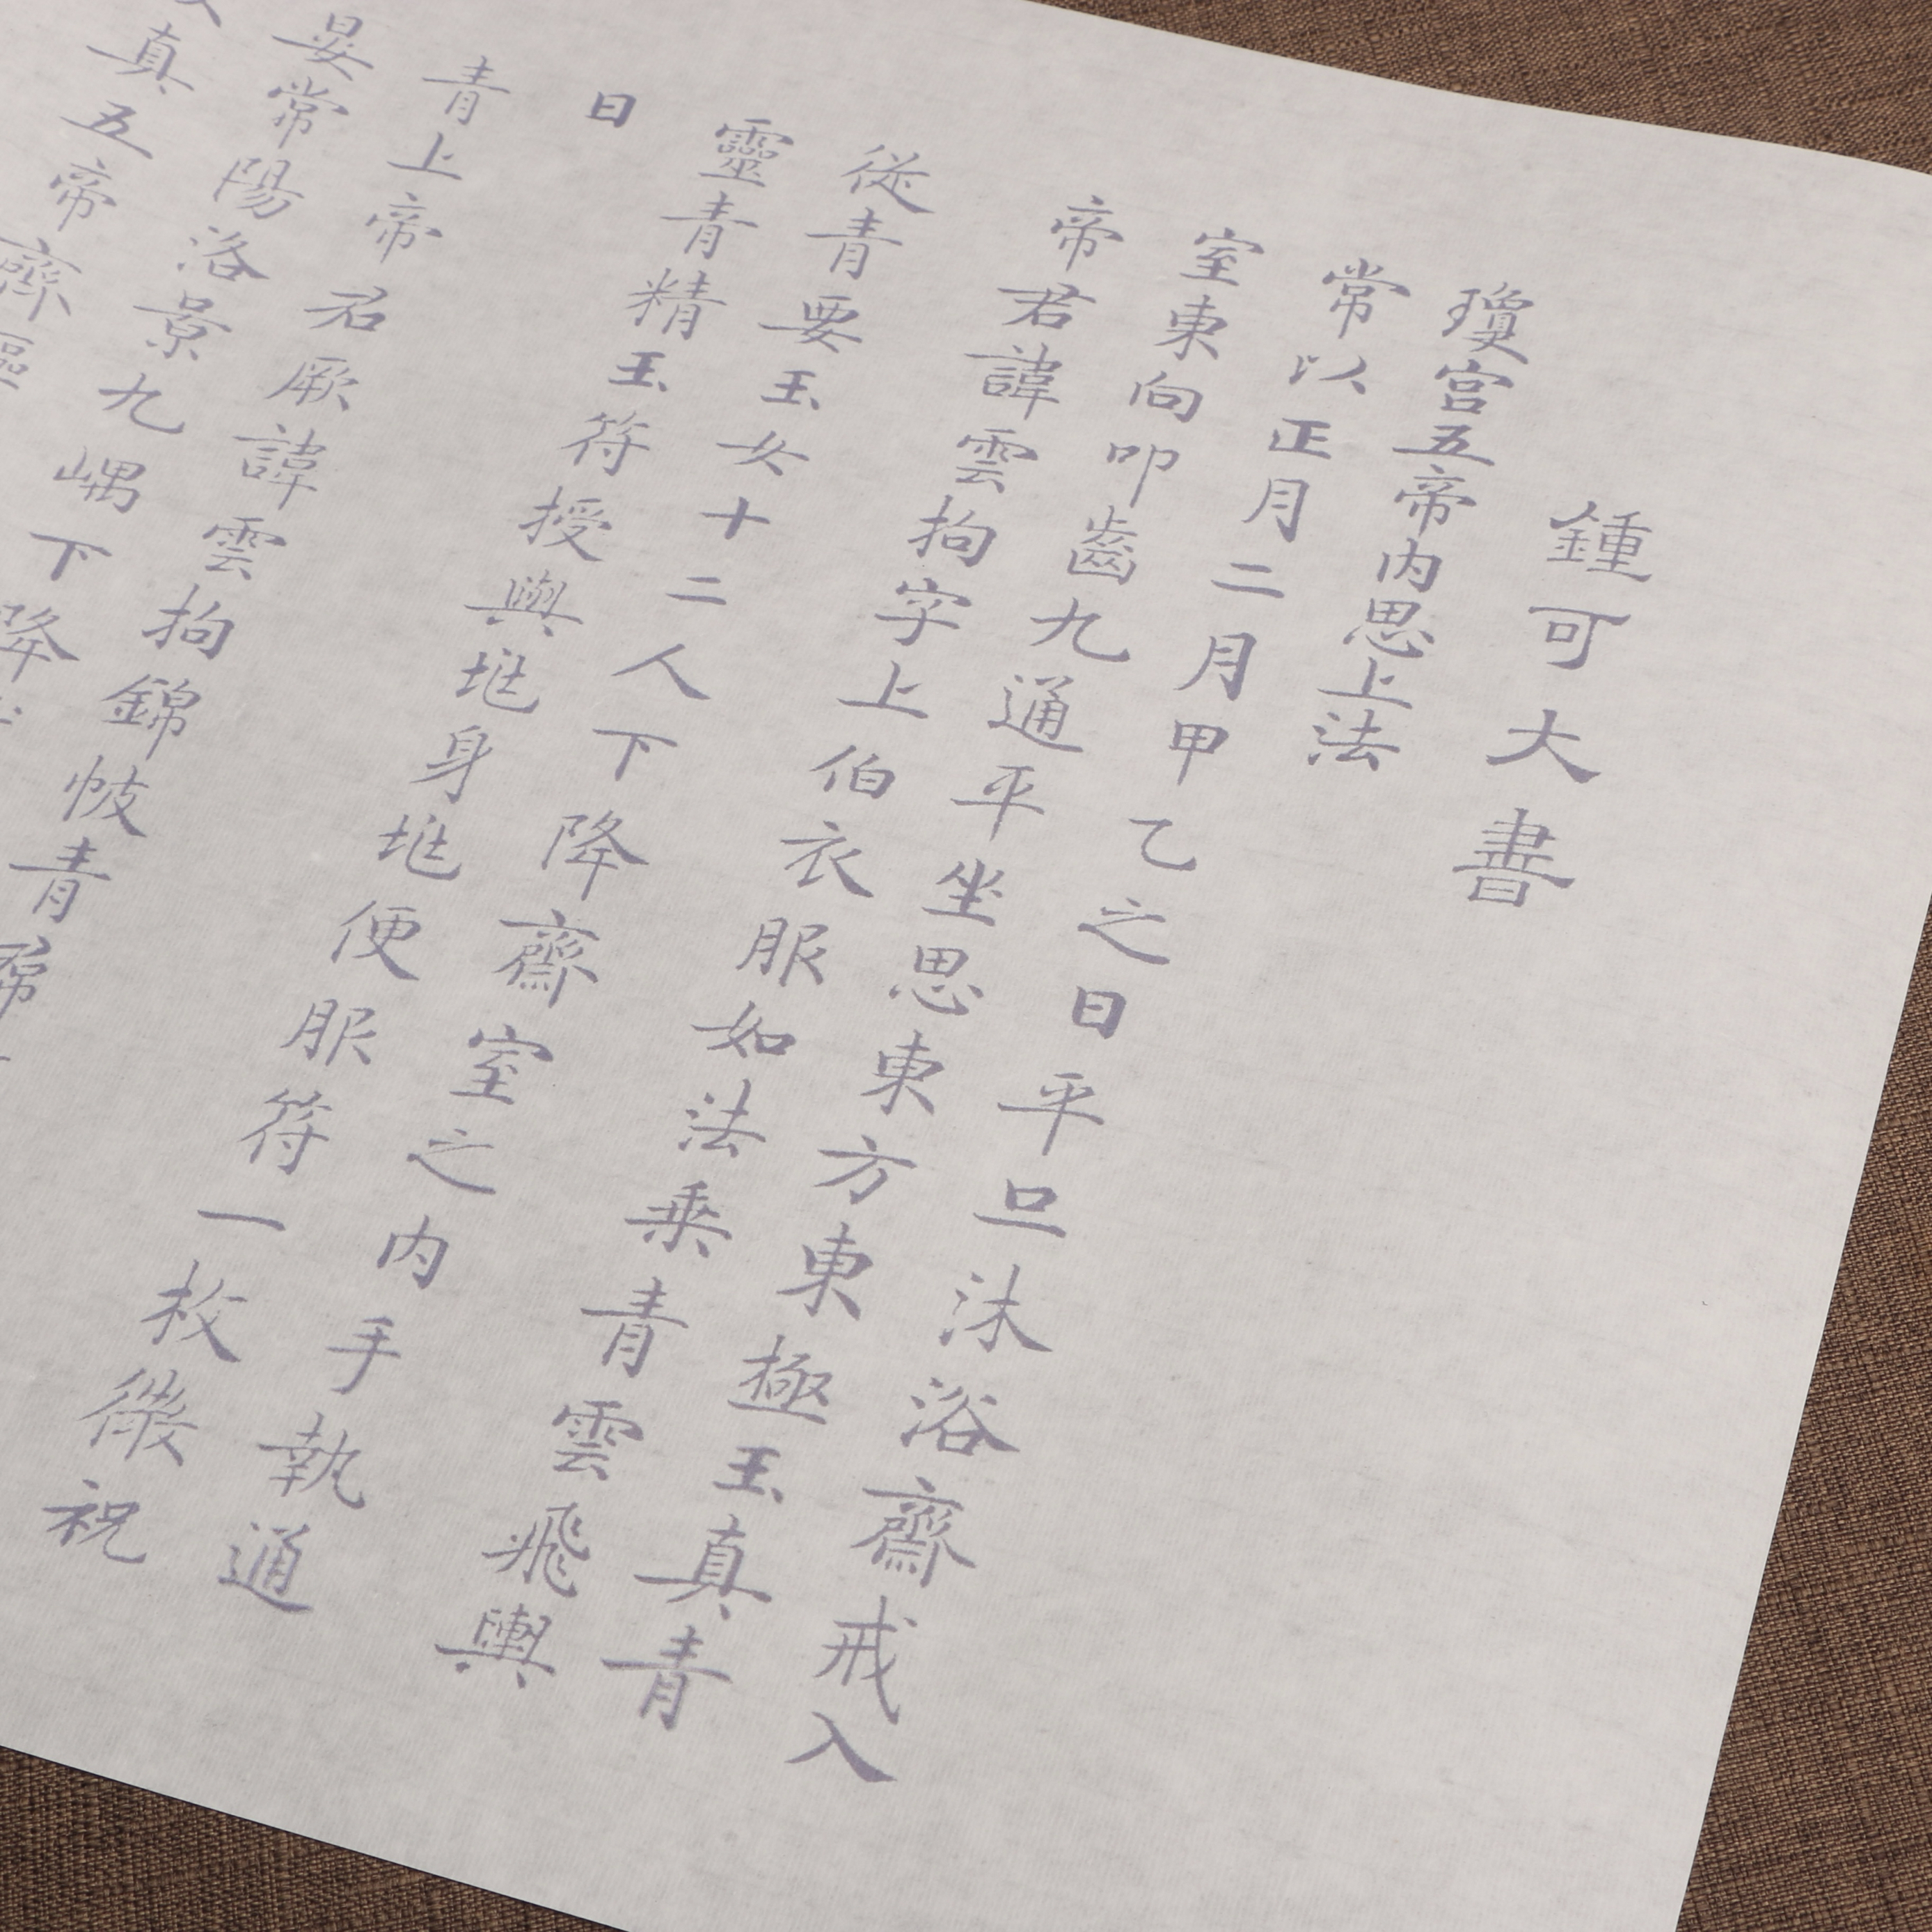 鍾可大書
瓊宮五帝内思上法
常以正月二月甲乙之日平旦沐浴齋戒入
室東向叩齒九通平坐思東方東極玉真青
帝君諱雲拘字上伯衣服如法乘青雲飛輿
從青要玉女十二人下降齋室之内手執通
靈青精玉符授與垗身垗便服符一枚微祝
曰
青上帝君厥諱雲拘錦帔青
晏常陽洛景九嵎下降
真五帝齊